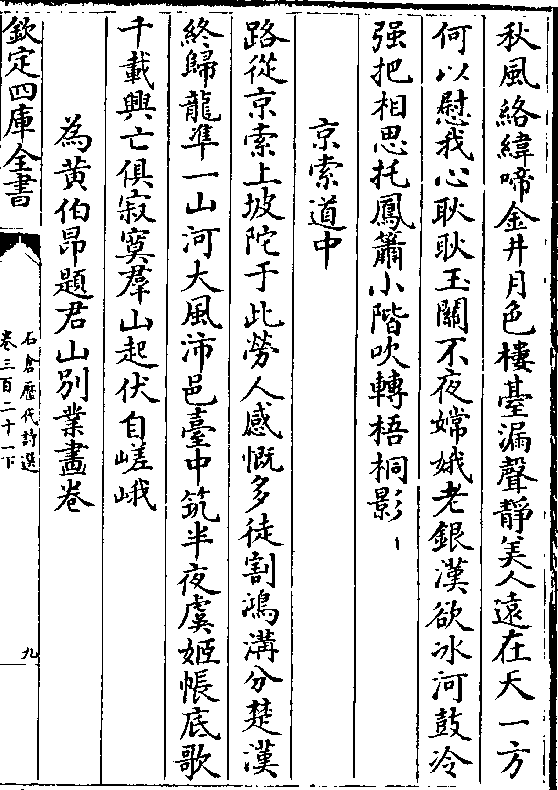 秋風絡緯啼金井月色樓臺漏聲靜美人遠在天一方
何以慰我心耿耿玉關不夜嫦娥老銀漢欲冰河鼓冷
强把相思托鳳簫小階吹轉梧桐影
京索道中
路從京索上坡陀于此勞人感慨多徒割鴻溝分楚漢
終歸龍準一山河大風沛邑臺中筑半夜虞姬帳底歌
千載興亡俱寂寞羣山起伏自嵯峨
為黄伯昂題君山别業畫卷
欽定四庫全書
石倉歷代詩選
卷三百二十一下
九